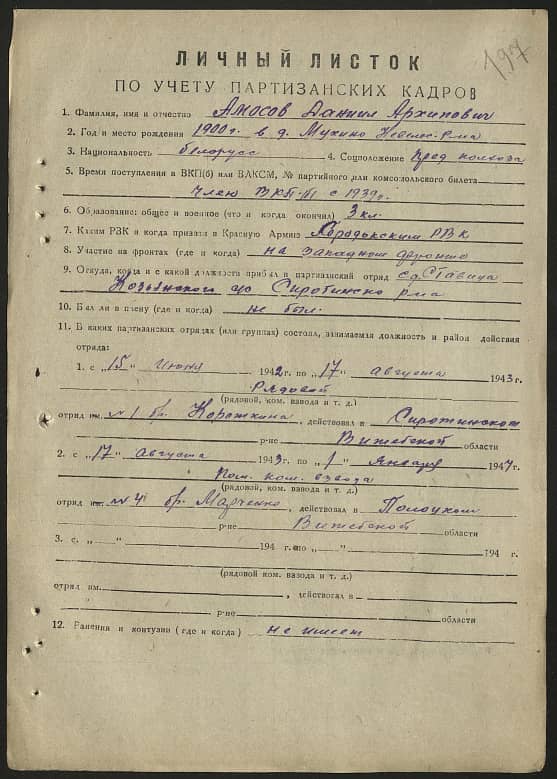 197
ЛИЧНЫЙ ЛИСТОК
ПО УЧЕТУ ПАРТИЗАНСКИХ КАДРОВ
1. Фамилия, имя и отчество Амосов Даниил Архипович
2. Год и место рождения 1900г. в д. Мухино Невельс. р-на
3. Национальность белорусс 4. Соцположение пред колхоза
5. Время поступления в ВКП(б) или ВЛКСМ, № партийного или комсомольского билета
член ВКП(б) с 1939г.
6. Образование: общее и военное (что и когда окончил) 3 кл.
7. Каким РВК и когда призван в Красную Армию Городокским РВК
8. Участие на фронтах (где и когда) на западном фронте
9. Откуда, когда и с какой должности прибыл в партизанский отряд с д. Ставица
Козьянского с/с Сиротинско р-на
10. Был ли в плену (где и когда) не был.
11. В каких партизанских отрядах (или группах) состоял, занимаемая должность и район действия
отряда:
1. с „15" июня 1942 г. по „17" августа 1943 г.
Рядовой
(рядовой, ком. взвода и т. д.)
отряд им. №1 бр. Короткина, действовал в Сиротинском
р-не Витебской области
2. с „17" августа 1943 г. по „1" января 1944 г.
Пом. ком. взвода
(рядовой, ком. взвода и т. д.)
отряд им. №4 бр. Марченко, действовал в Полоцком
р-не Витебской области
3. с „ " 194 г. по „ " 194 г.
(рядовой ком. взвода и т. д.)
отряд им. , действовал в
р-не области.
12. Ранения и контузии (где и когда) не имеет